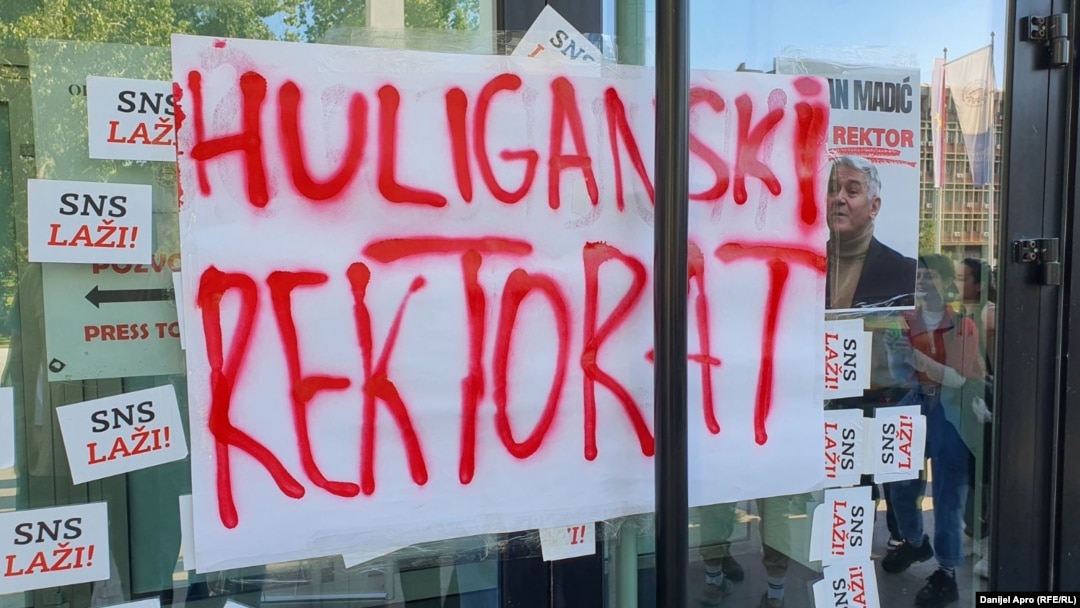 SNS
SNS
LAŽ
SNS
LAŽI!
PRESS
SNS
LAŽI!
SNS
LAŽI!
HULIGANSKI
REKTORAT
AN MADIĆ
REKTOR
SNS
LAŽI!
SNS
LAŽI!
SNS
LAŽI!
SNS
LAŽI!
SNS
LAŽI!
Danijel Apro (RFE/RL)